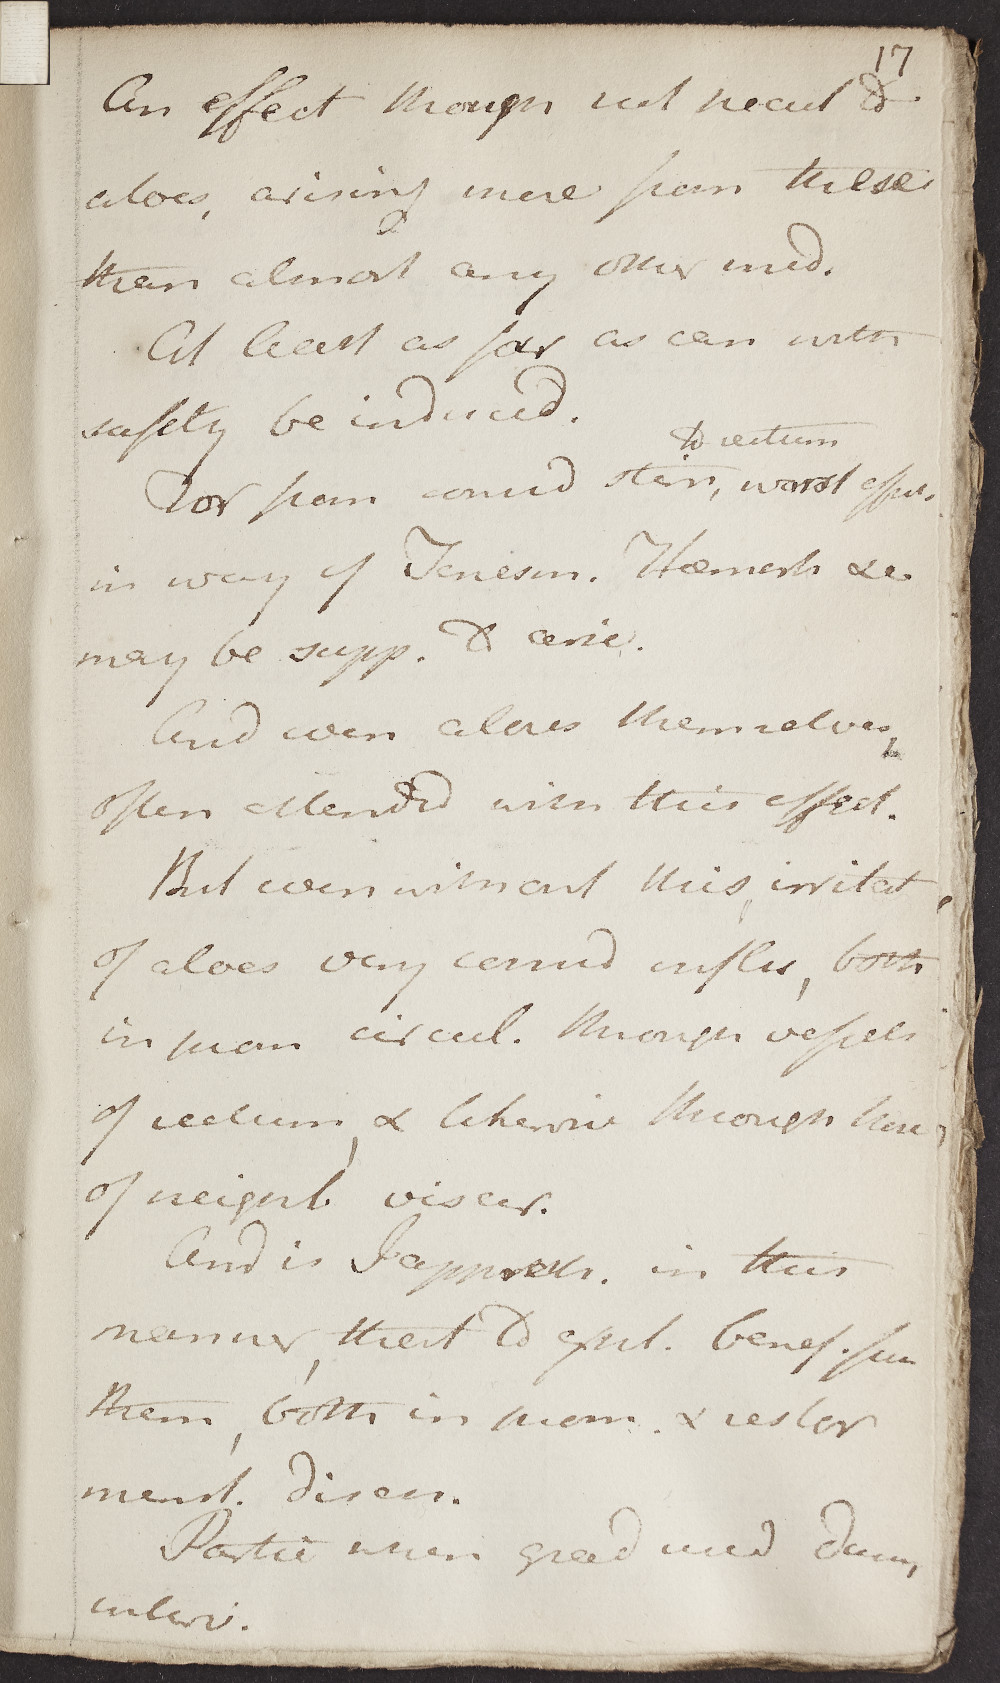 17
An effect though not pecul to
aloes, arising more from these
than almost any other med.
At least as far as can with
safety be induced.
to rectum
For from consid stim, worst effec.
in way of Tenesm. Hæmorrh &c
may be supp. to arise.
And even aloes themselves,
often attended with this effect.
But even without this, irritat,
of aloes very consid influ, both
in prom circul. through vessels
of rectum, & likewise through those
of neighb viscer.
And is I apprehr. in this
manner, that to expl. benef. from
them, both in prom. & restor
menst. discer.
Partic when great med